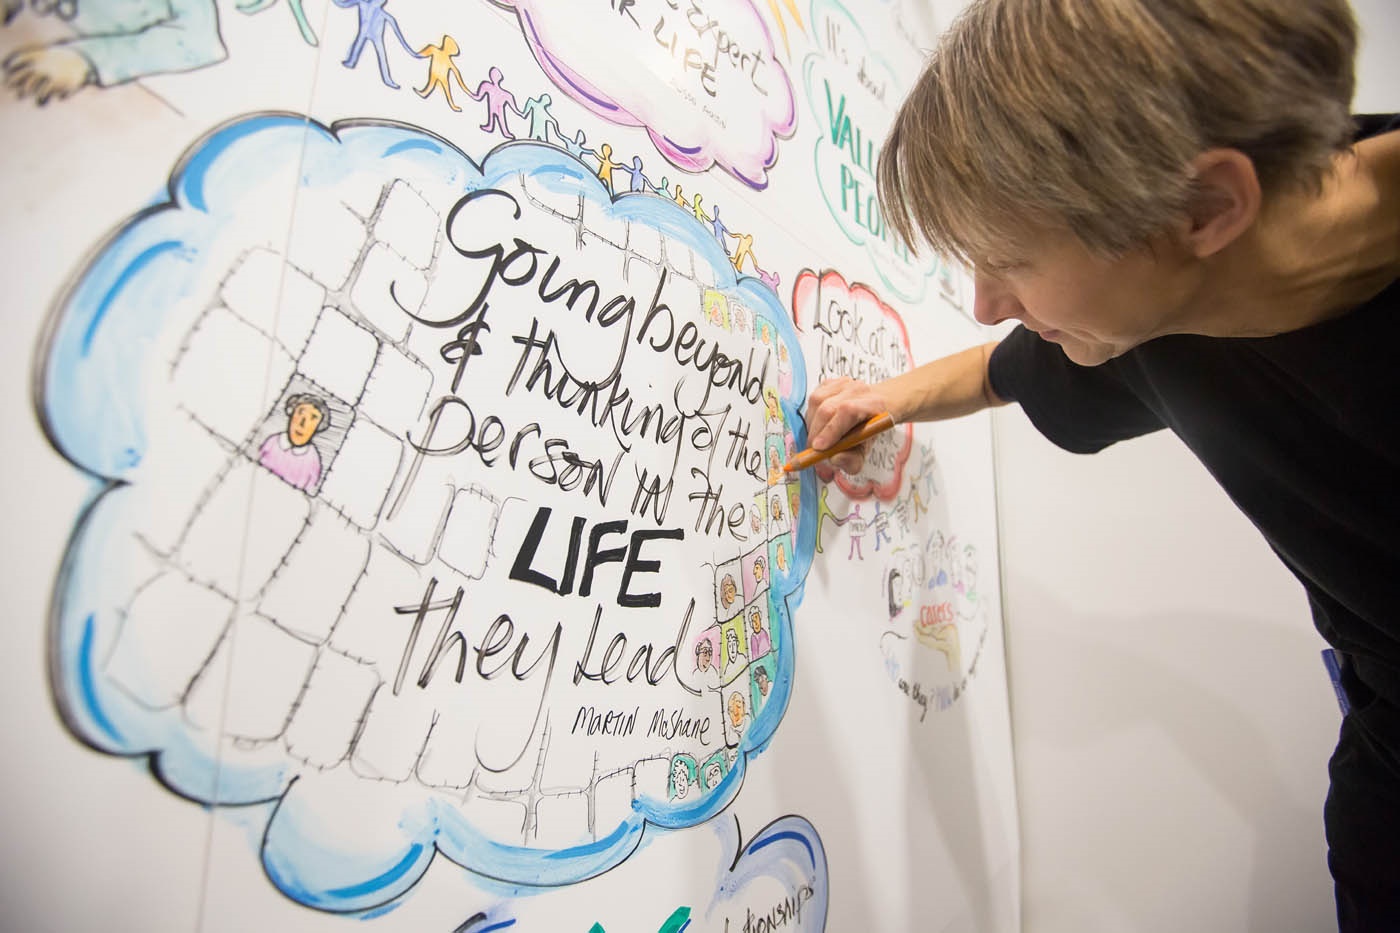 Expert
LIFE
It's about
VALU
PEO
Going beyond
& thinking of the
person in the
LIFE
they Lead
MARTIN McShane
Look at the
WHOLE
IONS
carers
are they?
ionships